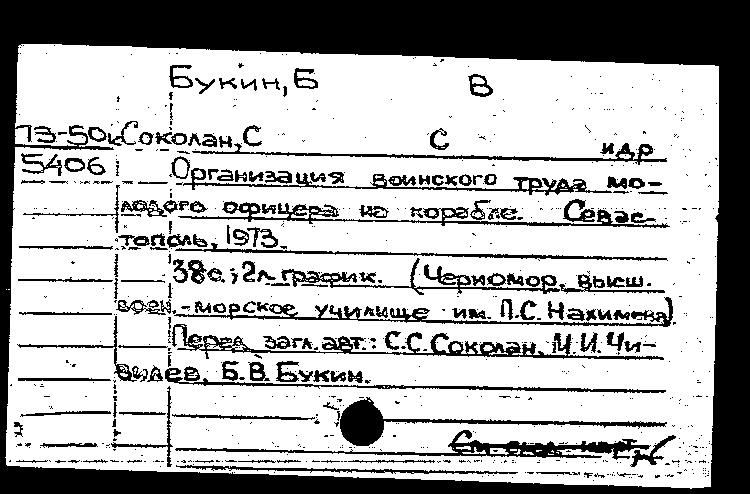 Букин, Б В
73-50 Соколан, С С и др
5406 Организация воинского труда мо-
лодого офицера на корабле. Севас-
тополь, 1973.
38с.; 2л. график. (Черномор. высш.
воен.-морское училище им. П.С. Нахимова)
Перед загл. авт.: С.С. Соколан, М.И. Чи-
вилев, Б.В. Букин.
См. след. карт.